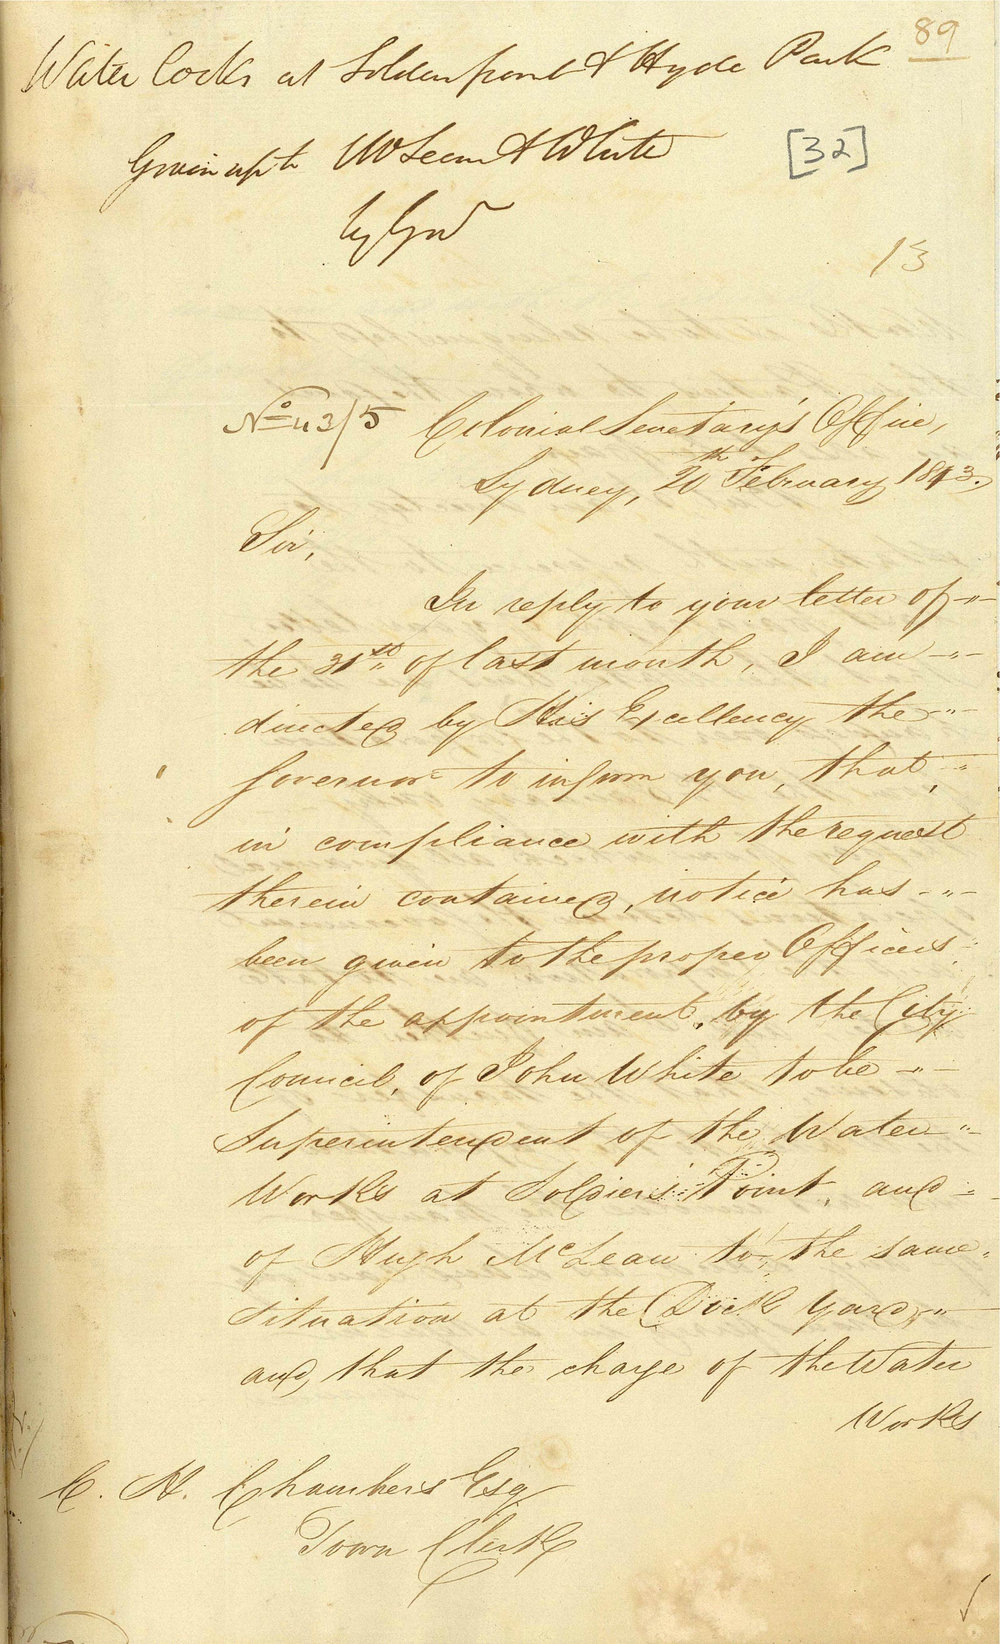 89
Water Cocks at Soldiers point & Hyde Park
Given up to McLean & White
[32]
by Govt
13
No. 43/5 Colonial Secretary's Office,
Sydney, 20th February 1843.
Sir,
In reply to your letter of
the 31st of last month, I am
directed by His Excellency the
Governor to inform you, that,
in compliance with the request
therein contained, notice has
been given to the proper Officers
of the appointment, by the City
Council, of John White to be
Superintendent of the Water
Works at Soldiers' Point, and
of Hugh McLean to the same
situation at the Dock yard,
and, that the charge of the Water
Works
C. H. Chambers Esq
Town Clerk